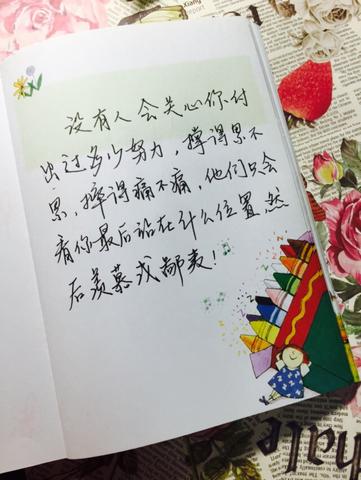 没有人会关心你付
出过多少努力，撑得累不
累，摔得痛不痛，他们只会
看你最后站在什么位置然
后羡慕或鄙夷！